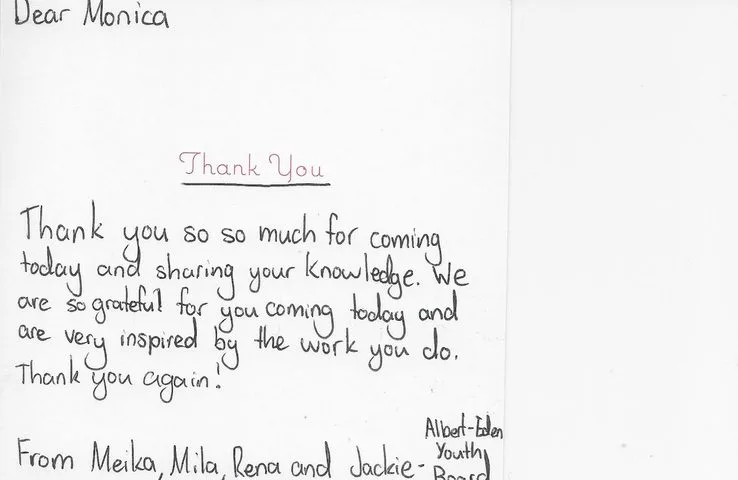 Dear Monica
Thank You
Thank you so so much for coming
today and sharing your knowledge. We
are so grateful for you coming today and
are very inspired by the work you do.
Thank you again!
From Meika, Mila, Rena and Jackie- Albert-Eden
Youth
Board